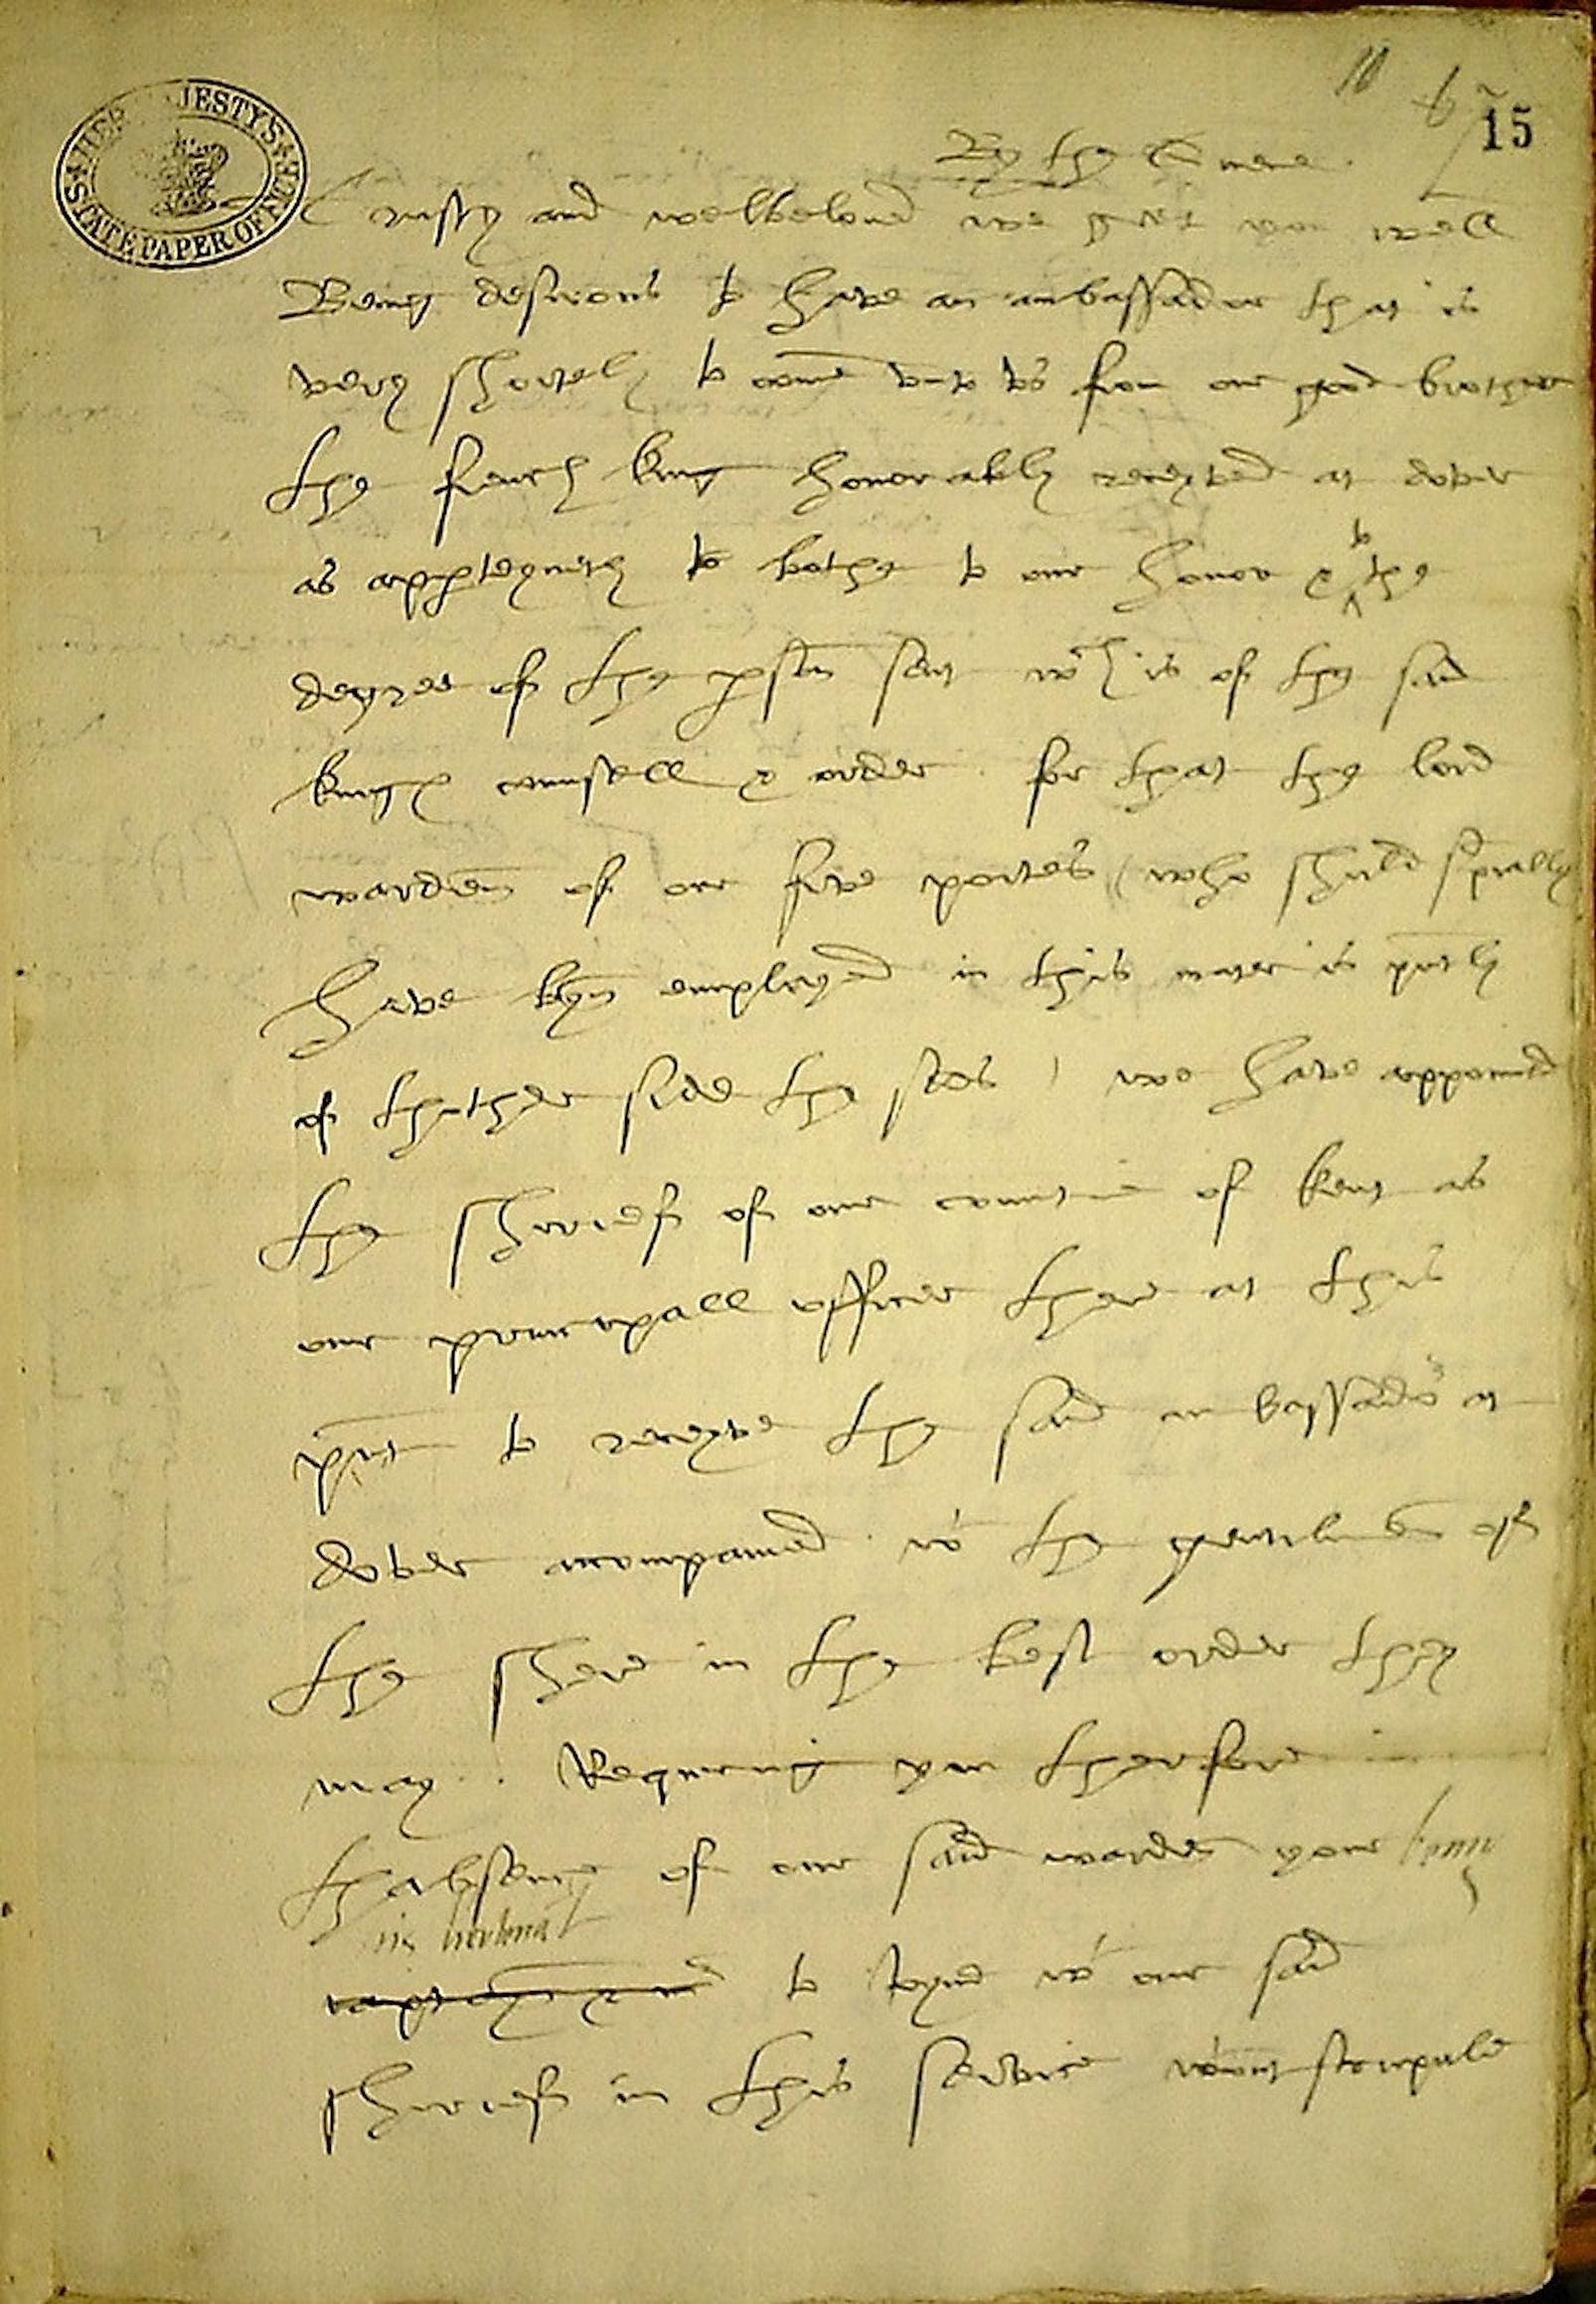 10 6 15
HER MAJESTY'S STATE PAPER OFFICE
By the Quene.
Trusty and welbeloued we grete you well
Being desirous to have an ambassador that is
very shortely to come vnto vs from our good brother
the french king honorably receyved at dover
as apperteyneth to bothe to our honor & ^to the
degree of the person sent wch is of the said
kinges counsell & order. for that the lord
warden of our five portes (who shuld specially
have beyn employed in this mater is presently
of thother side the sees) we have appointed
the shirief of our countie of kent as
our principall officer there at this
present to receyve the said ambassador at
dover accompanied wt the gentilmen of
the shere in the best order they
may. Requiring you therfore in
thabsence of our said warden your
to ioyne wt our said
shirief in this service without scruple